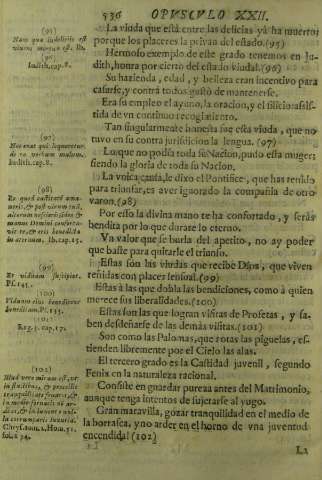 536 OPUSCULO XXII.
La viuda que está entre las delicias yá ha muerto;
porque los placeres la privan del estado. (95)
Hermoso exemplo de este grado tenemos en Ju-
dith, honra por cierto del estado viudal. (96)
Su hazienda, edad, y belleza eran incentivo para
casarse, y contra todos gustó de mantenerse.
Era su empleo el ayuno, la oracion, y el silicio assis-
tida de vn continuo recogimiento.
Tan singularmente honesta fue esta viuda, que no
tuvo en su contra jurisdiccion la lengua. (97)
Lo que no podia toda su Nacion, pudo esta muger;
siendo la gloria de toda su Nacion.
La voica causa, le dixo el Pontifice, que has tenido
para triunfar, es aver ignorado la compañia de otro
varon. (98)
Por esso la divina mano te ha confortado, y serás
bendita por lo que durare lo eterno.
Un valor que se burla del apetito, no ay poder
que baste para quitarle el triunfo.
Estas són las viudas que recibe Dios, que viven
reñidas con placer sensual. (99)
Estas á las que dobla las bendiciones, como á quien
merece sus liberalidades. (100)
Estas són las que logran visitas de Profetas, y sa-
ben desdeñarse de las demás visitas. (101)
Són como las Palomas, que rotas las piguelas, es-
tienden libremente por el Cielo las alas.
El tercero grado es la Castidad juvenil, segundo
Fenix en la naturaleza racional.
Consiste en guardar pureza antes del Matrimonio,
aunque tenga intentos de sujetarse al yugo.
Gran maravilla, gozar tranquilidad en el medio de
la borrasca, y no arder en el horno de vna juventud
encendida! (102)
La
(95)
Nam quæ in deliciis est
vivens mortua est. Ib.
(96)
Iudith. cap. 8.
(97)
Nec erat qui loqueretur
de ea verbum malum.
Iudith. cap. 8.
(98)
Eo quod castitatem ama-
veris, & post virum tuum,
alterum nescieris: ideo &
manus Domini conforta-
vit te, & eris benedicta
in æternum. Ib. cap. 15.
(99)
Et viduam suscipiet.
Ps. 145.
(100)
Viduam eius benedicens
benedicam. Ps. 131.
(101)
Reg. 3. cap. 17.
(102)